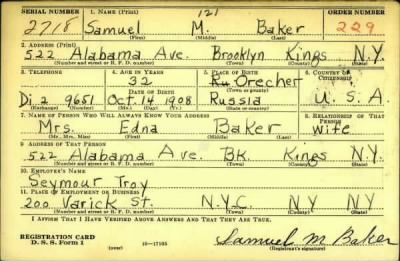 SERIAL NUMBER 1. NAME (Print) ORDER NUMBER
121
2718 Samuel M. Baker 229
(First) (Middle) (Last)
2. ADDRESS (Print)
522 Alabama Ave. Brooklyn Kings N.Y.
(Number and street or R. F. D. number) (Town) (County) (State)
3. TELEPHONE 4. AGE IN YEARS 5. PLACE OF BIRTH 6. COUNTRY OF CITIZENSHIP
32 Ru Orecher
DATE OF BIRTH (Town or county)
Di 2 9651 Oct. 14 1908 Russia U.S.A.
(Exchange) (Number) (Mo.) (Day) (Yr.) (State or country)
7. NAME OF PERSON WHO WILL ALWAYS KNOW YOUR ADDRESS 8. RELATIONSHIP OF THAT PERSON
Mrs. Edna Baker wife
(Mr., Mrs., Miss) (First) (Middle) (Last)
9. ADDRESS OF THAT PERSON
522 Alabama Ave. BK. Kings N.Y.
(Number and street or R. F. D. number) (Town) (County) (State)
10. EMPLOYER'S NAME
Seymour Troy
11. PLACE OF EMPLOYMENT OR BUSINESS
200 Varick St. N.Y.C. N.Y. N.Y.
(Number and street or R. F. D. number) (Town) (County) (State)
I AFFIRM THAT I HAVE VERIFIED ABOVE ANSWERS AND THAT THEY ARE TRUE.
REGISTRATION CARD
D. S. S. Form 1 (over) 16—17105 Samuel M Baker
(Registrant's signature)